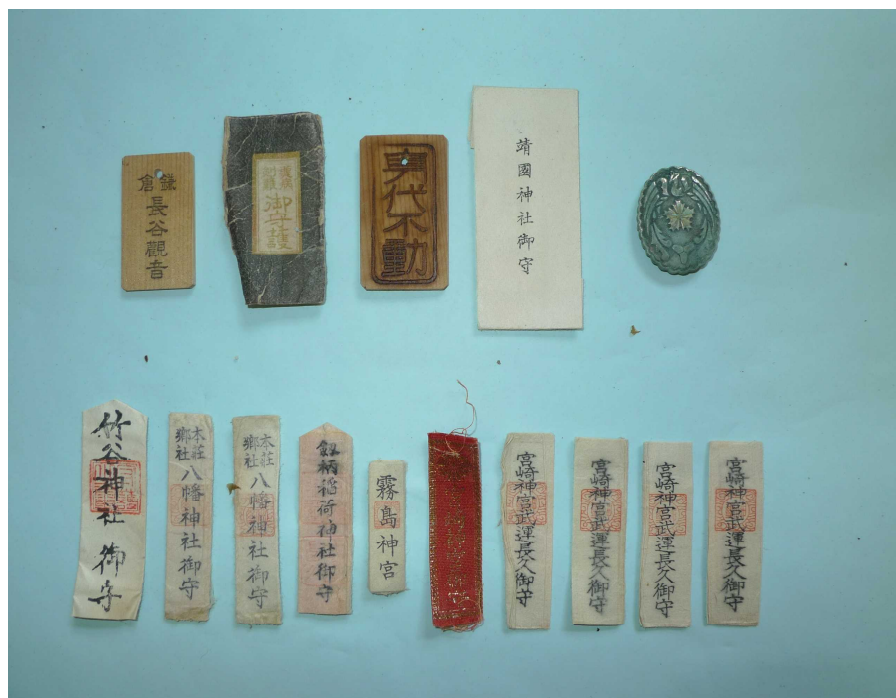 鎌倉
長谷觀音
御守護
身代不動
靖國神社御守
竹谷神社御守
本莊
鄉社
八幡神社御守
本莊
鄉社
八幡神社御守
劔柄稲荷神社御守
霧島神宮
宮崎神宮武運長久御守
宮崎神宮武運長久御守
宮崎神宮武運長久御守
宮崎神宮武運長久御守